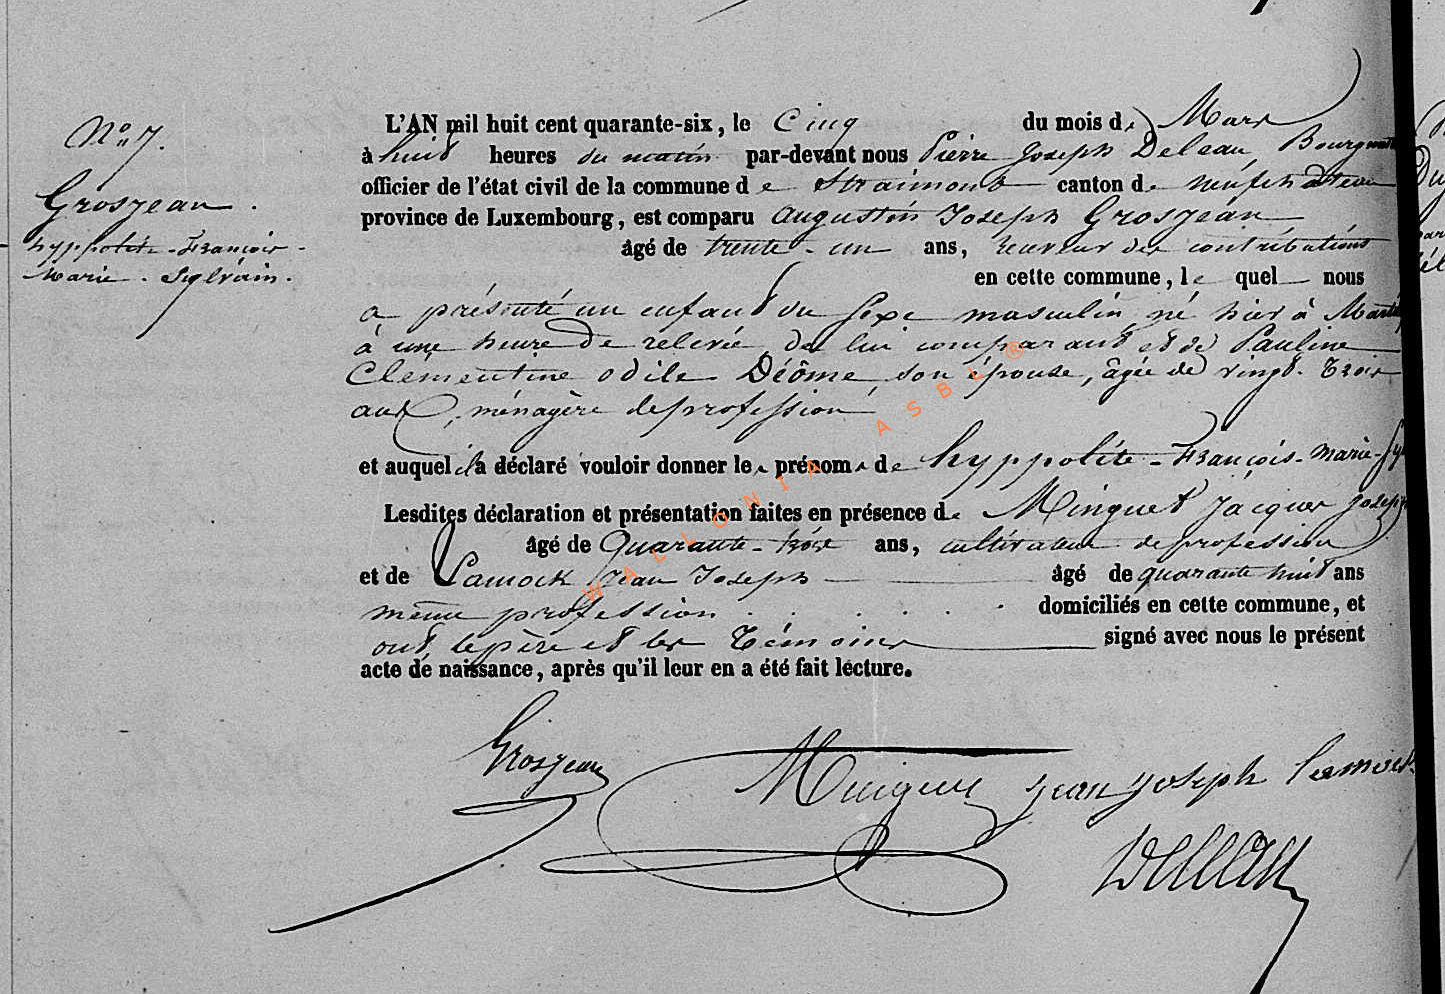 N° 7.
Grosjean.
hyppolite - François -
Marie - Sylvain.
L'AN mil huit cent quarante-six, le Cinq du mois de Mars
à huit heures du matin par-devant nous Pierre Joseph Deleau Bourgmestre
officier de l'état civil de la commune de Straimont canton de neufchâteau
province de Luxembourg, est comparu augustin Joseph Grosjean
âgé de trente-un ans, receveur des contributions
en cette commune, lequel nous
a présenté un enfant du sexe masculin, né hier à
à une heure de relevée, de lui comparant et de Pauline
Clémentine odile Déôme, son épouse, âgée de vingt-trois
ans, ménagère de profession
et auquel il a déclaré vouloir donner les prénoms de hyppolite - François - marie -
Lesdites déclaration et présentation faites en présence de Minguet Jacques Joseph
âgé de Quarante-trois ans, cultivateur de profession
et de Lamock Jean Joseph âgé de quarante huit ans
même profession domiciliés en cette commune, et
ont le père et les témoins signé avec nous le présent
acte de naissance, après qu'il leur en a été fait lecture.
Grosjean Minguet jean joseph
Deleau
WALLONIA ASBL ®